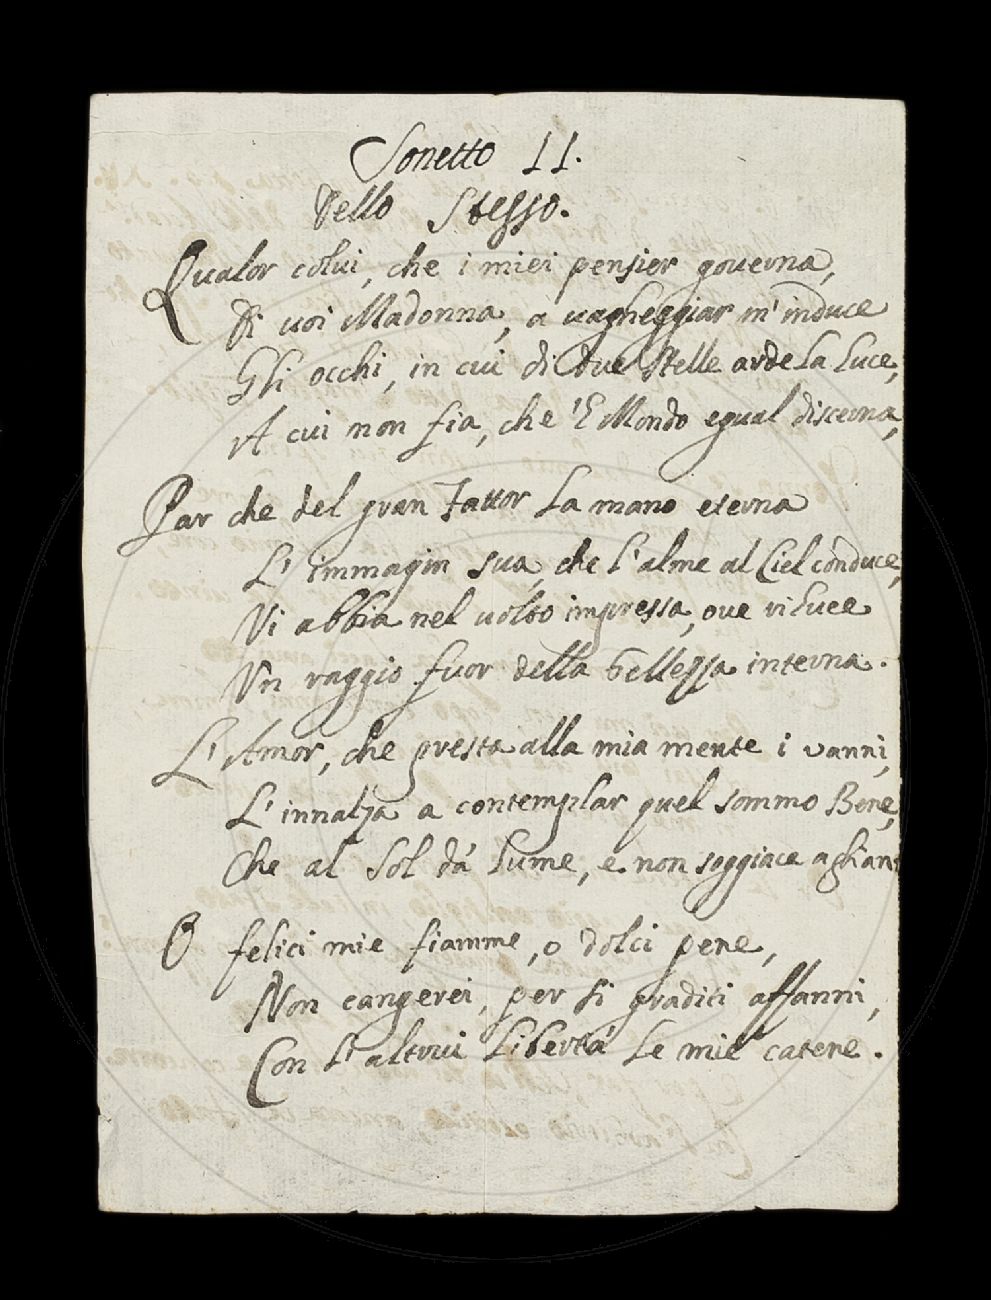 Sonetto II.
Dello Stesso.
Qualor colui, che i miei pensier governa,
Di uoi Madonna, a uagheggiar m'induce
Gli occhi, in cui di due Stelle arde La Luce,
A cui non fia, che 'l Mondo egual discerna,
Par che del gran Fattor La mano eterna
L'immagin sua, che l'alme al Ciel conduce,
Vi abbia nel uolto impressa, oue riluce
Un raggio fuor della bellezza interna.
L'Amor, che presta alla mia mente i vanni,
L'innalza a contemplar quel sommo Bene,
Che al Sol dá Lume, e non soggiace agli ann
O felici mie fiamme, o dolci pene,
Non cangerei, per si graditi affanni,
Con l'altrui Libertá Le mie catene.